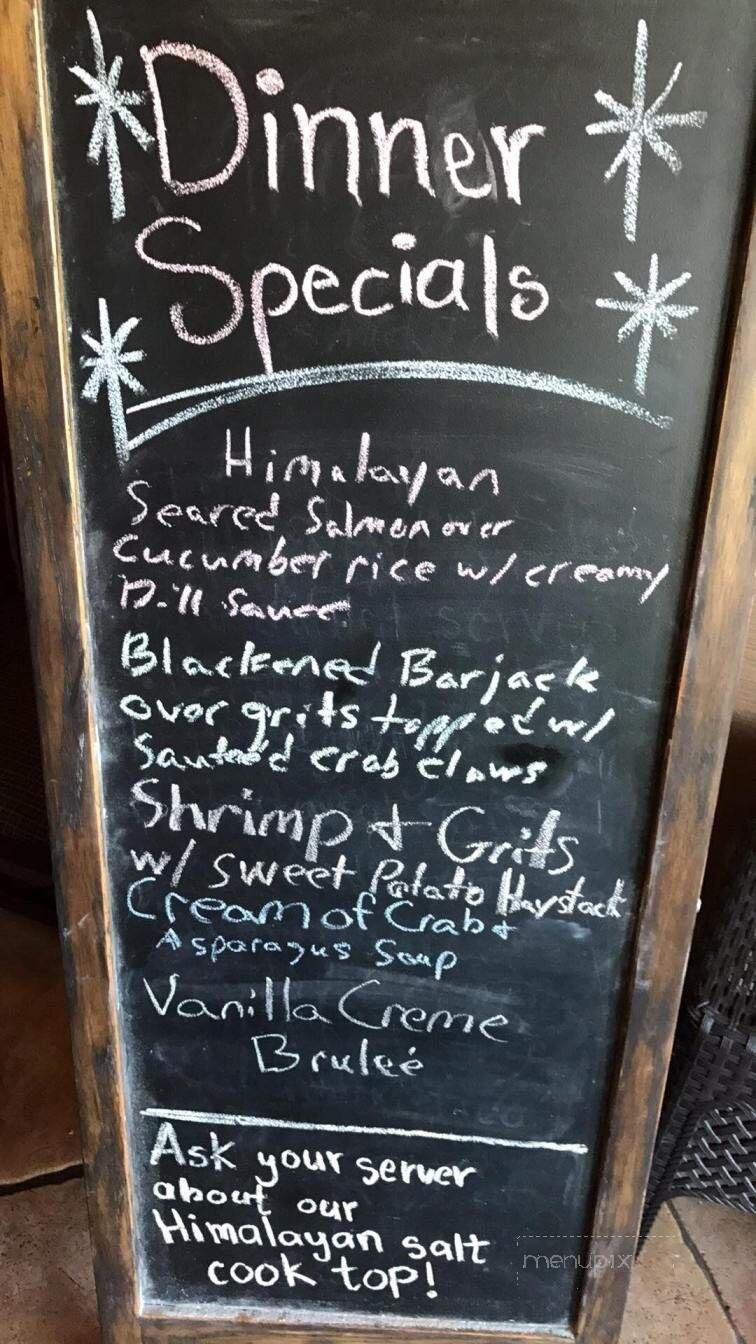 Dinner
Specials
Himalayan
Seared Salmon over
cucumber rice w/ creamy
Dill Sauce
Blackened Barjack
over grits topped w/
Sauteéd crab claws
Shrimp & Grits
w/ sweet Potato Haystack
Cream of Crab &
Asparagus Soup
Vanilla Creme
Bruleé
Ask your server
about our
Himalayan salt
cook top!
menupix